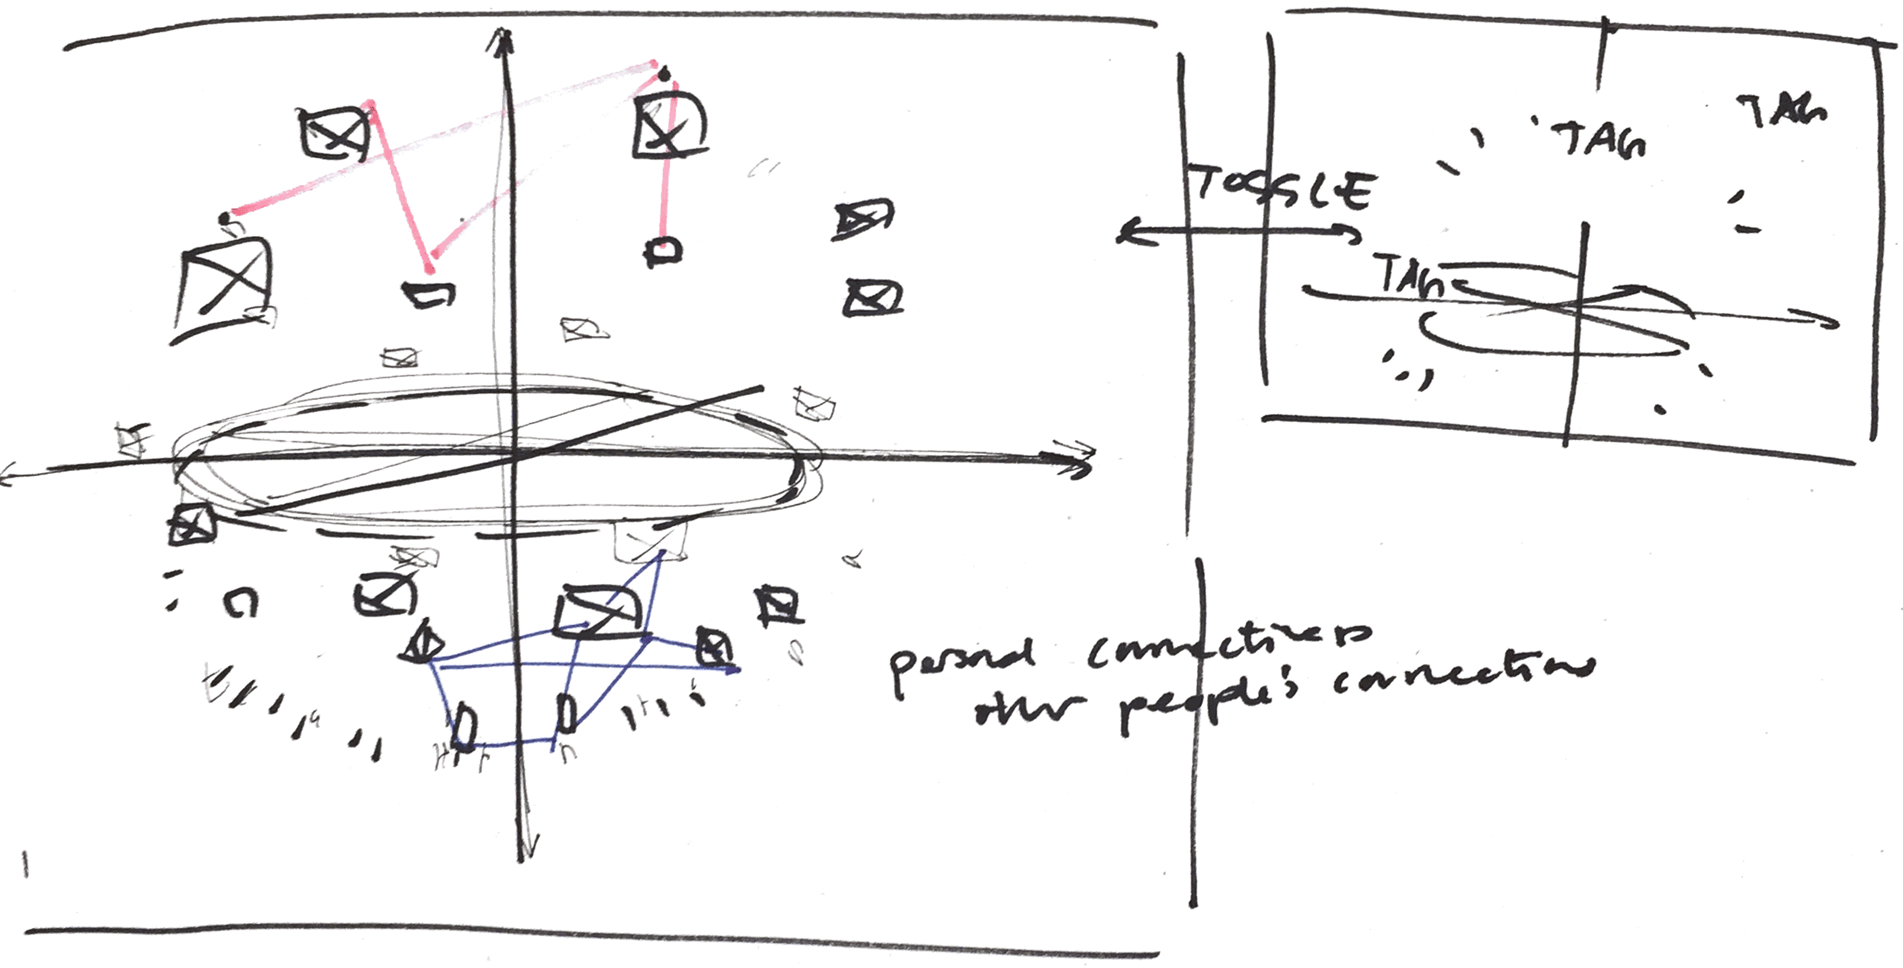 TAG
TAG
TOGGLE
TAG
personal connections
other people's connections